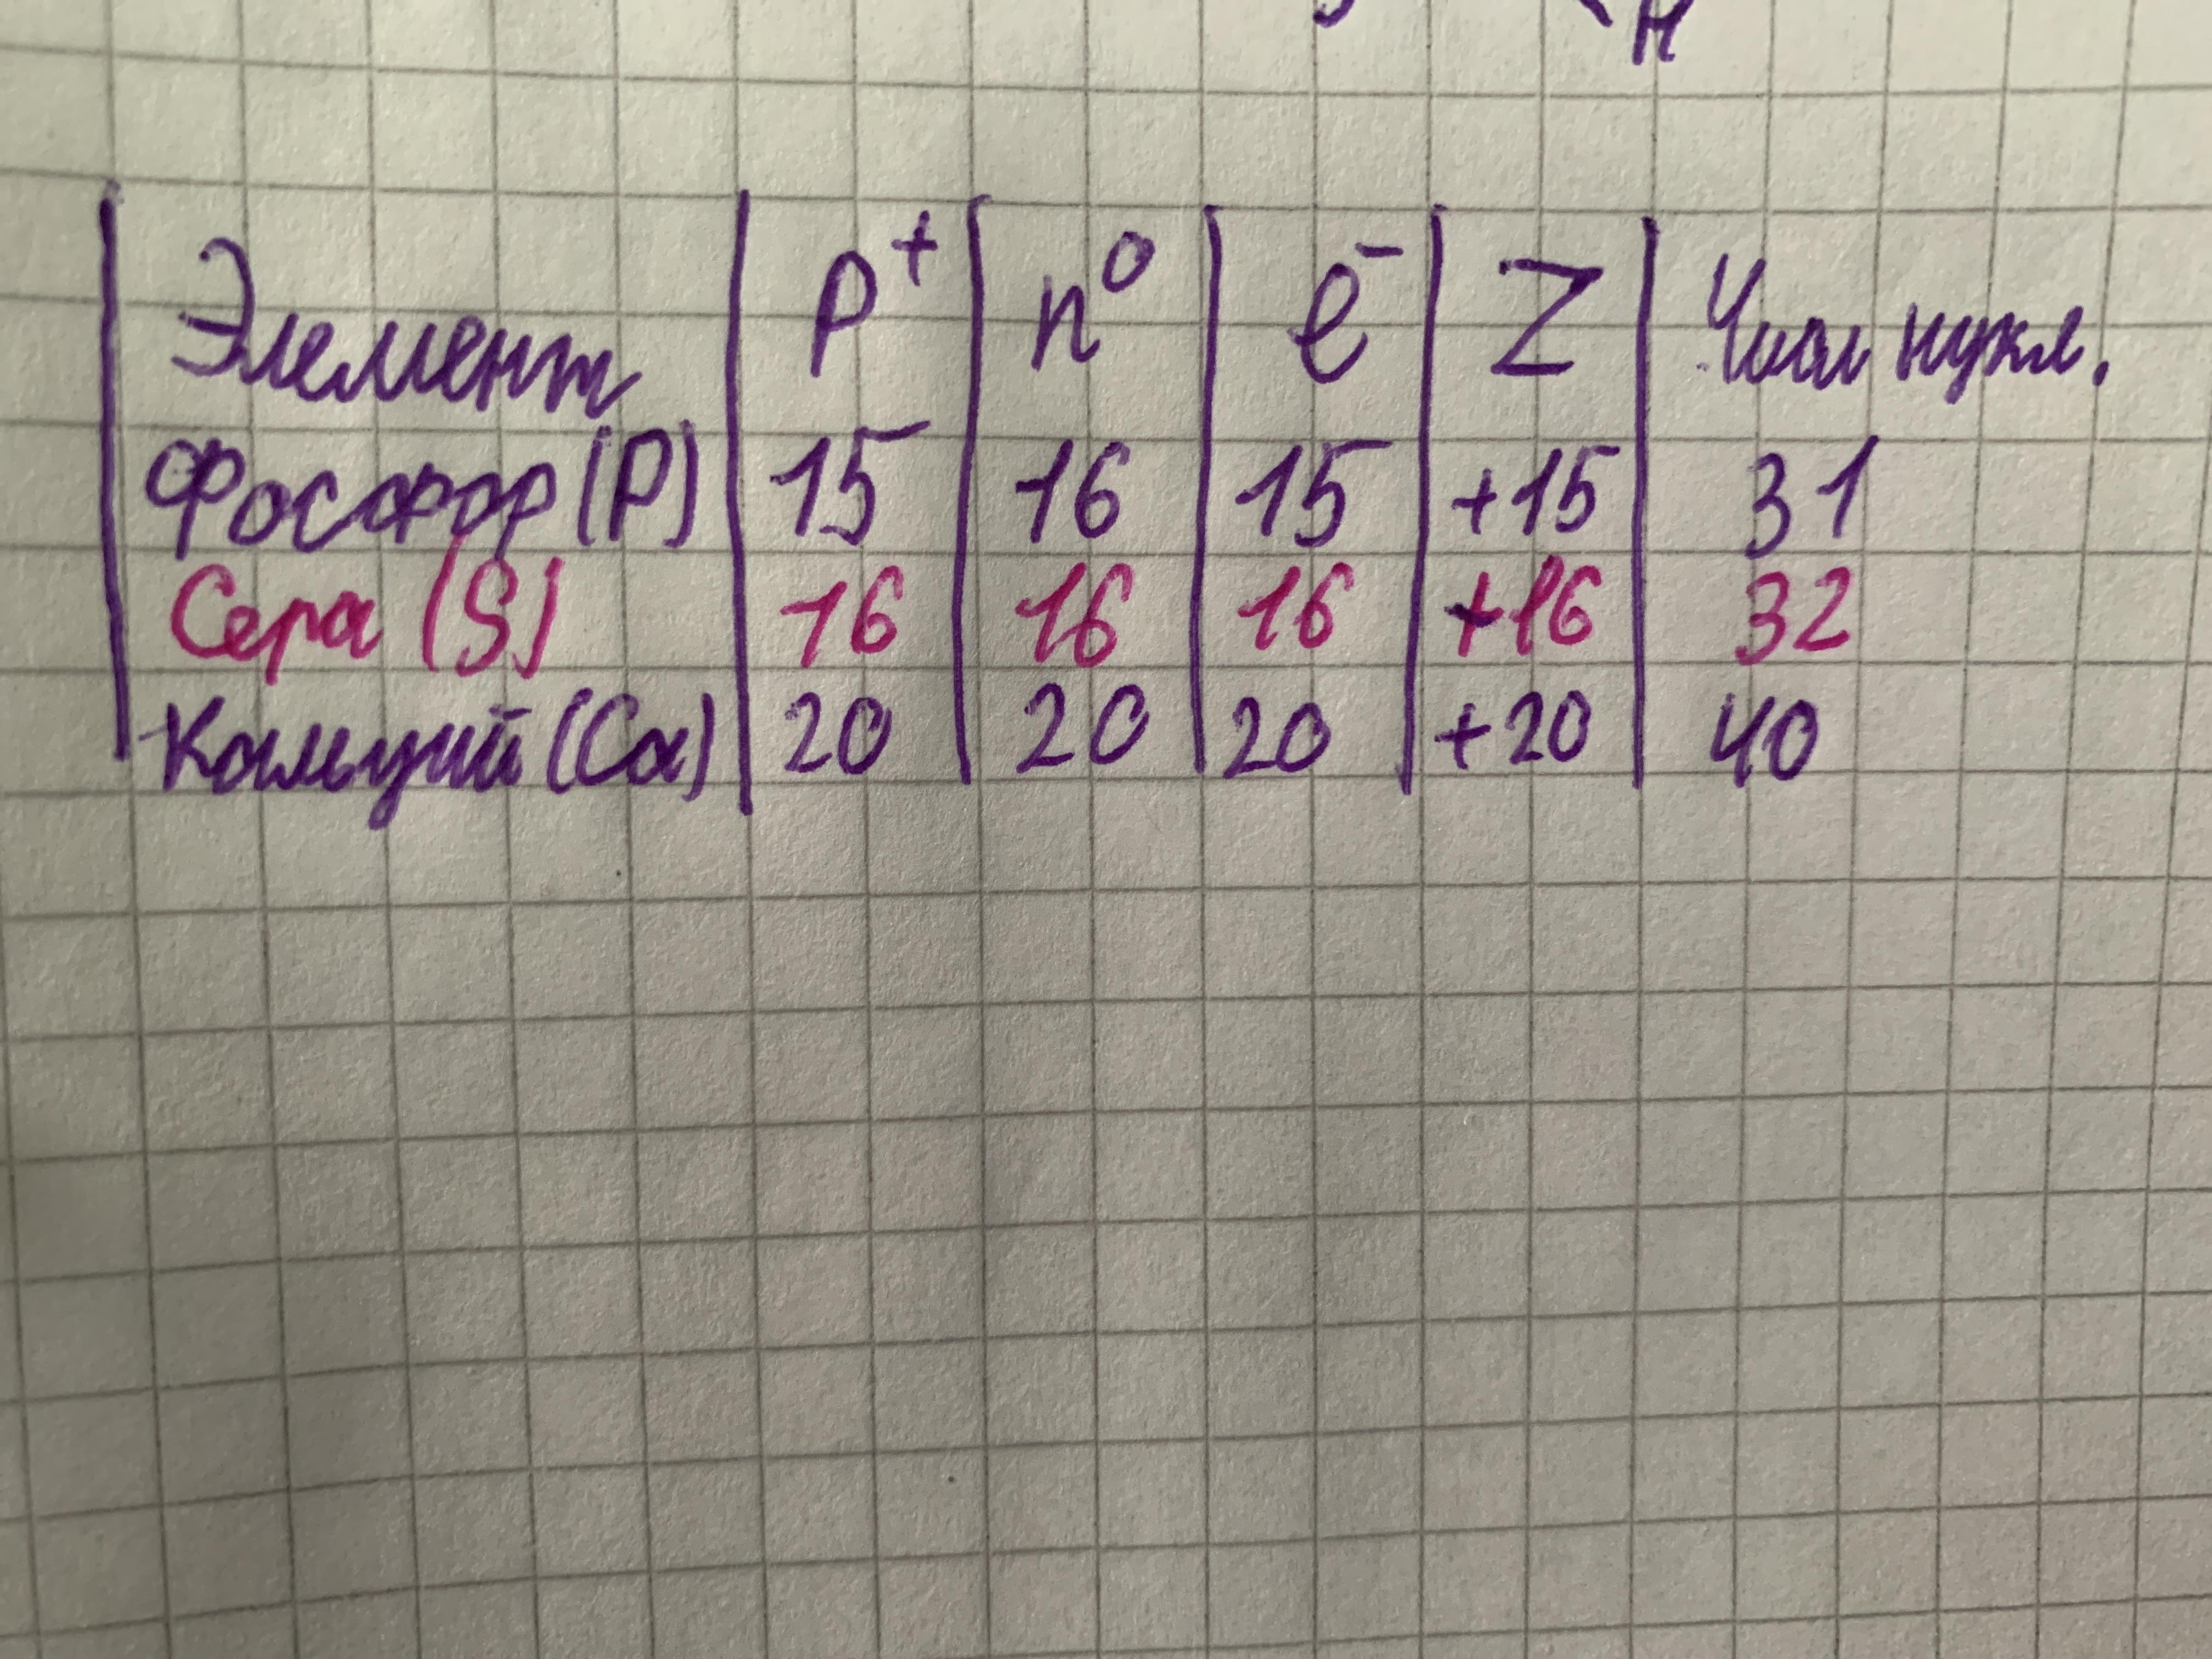 H
Элемент p⁺ n⁰ e⁻ Z Число нукл.
Фосфор (P) 15 16 15 +15 31
Сера (S) 16 16 16 +16 32
Кальций (Ca) 20 20 20 +20 40